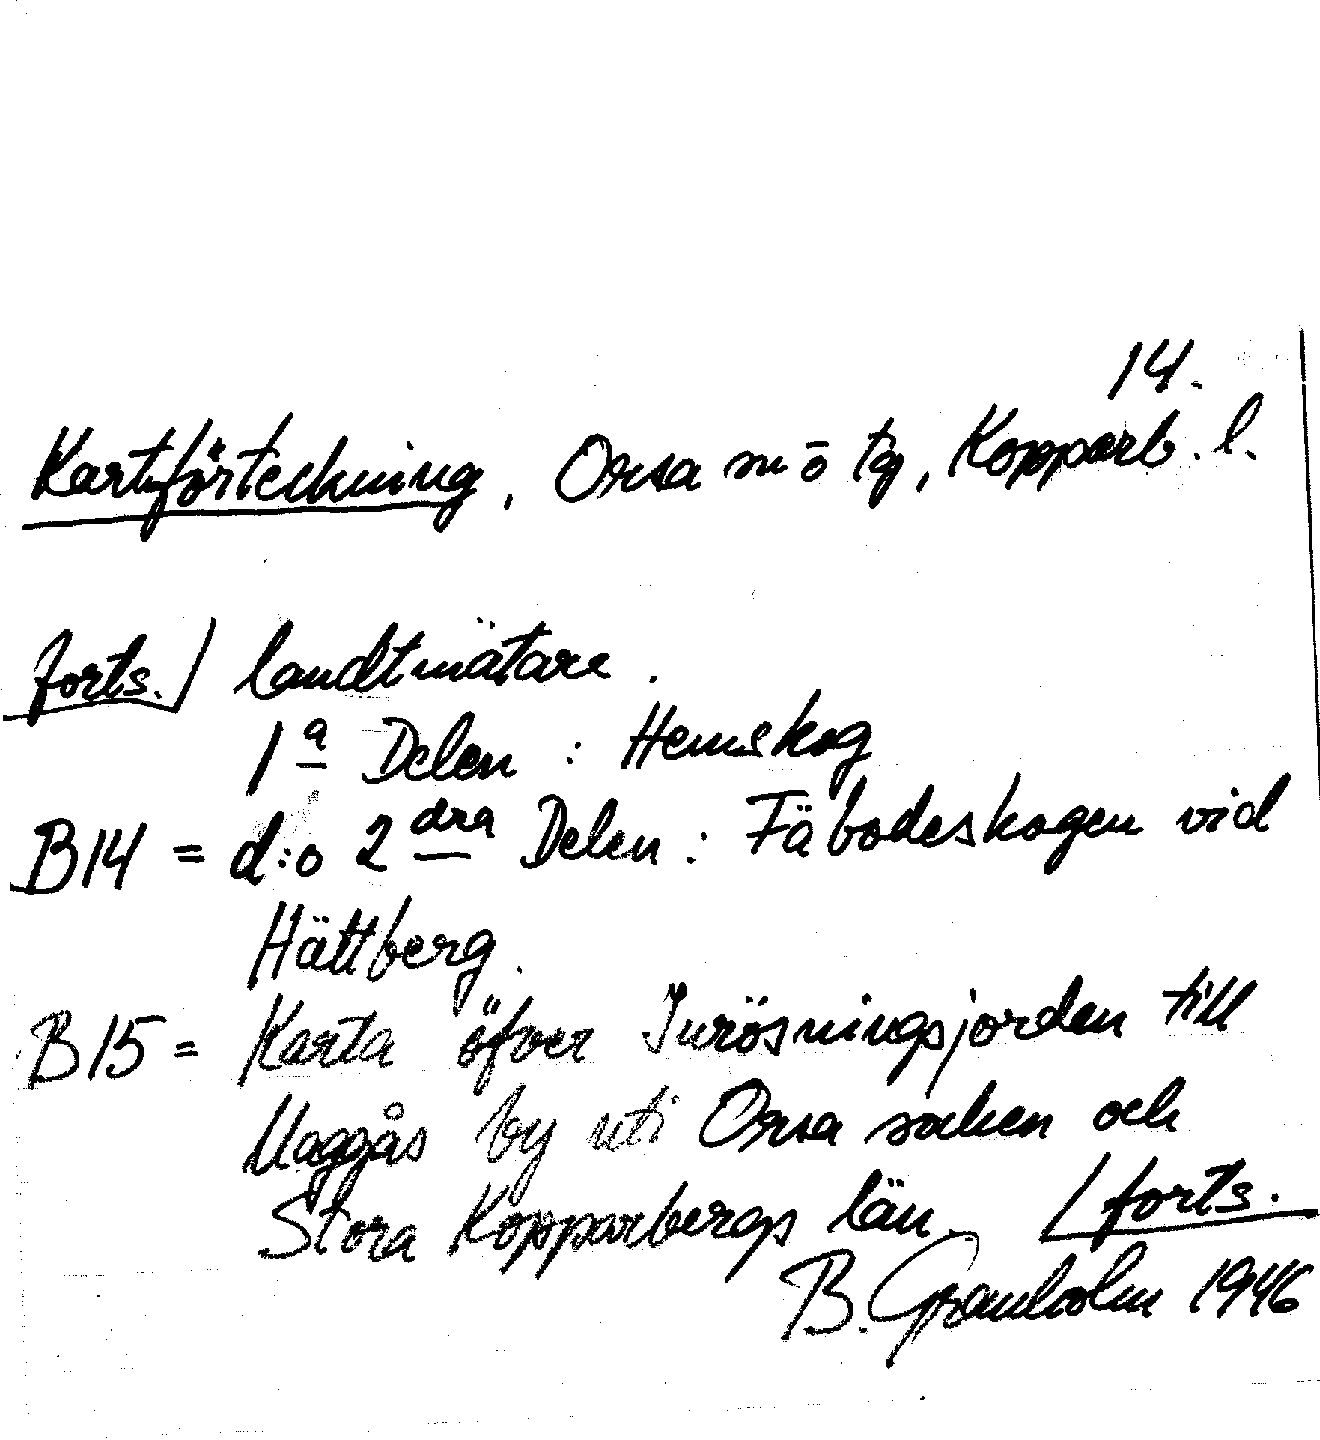 14.
Kartförteckning, Orsa m ö tg, Kopparb. l.
forts. / landtmätare.
1a Delen : Hemskog
B14 = d:o 2dra Delen : Fäbodeskogen vid
Hättberg.
B15 = Karta öfver Inrösningsjorden till
Maggås by uti Orsa socken och
Stora Kopparbergs län / forts.
B. Granholm 1946